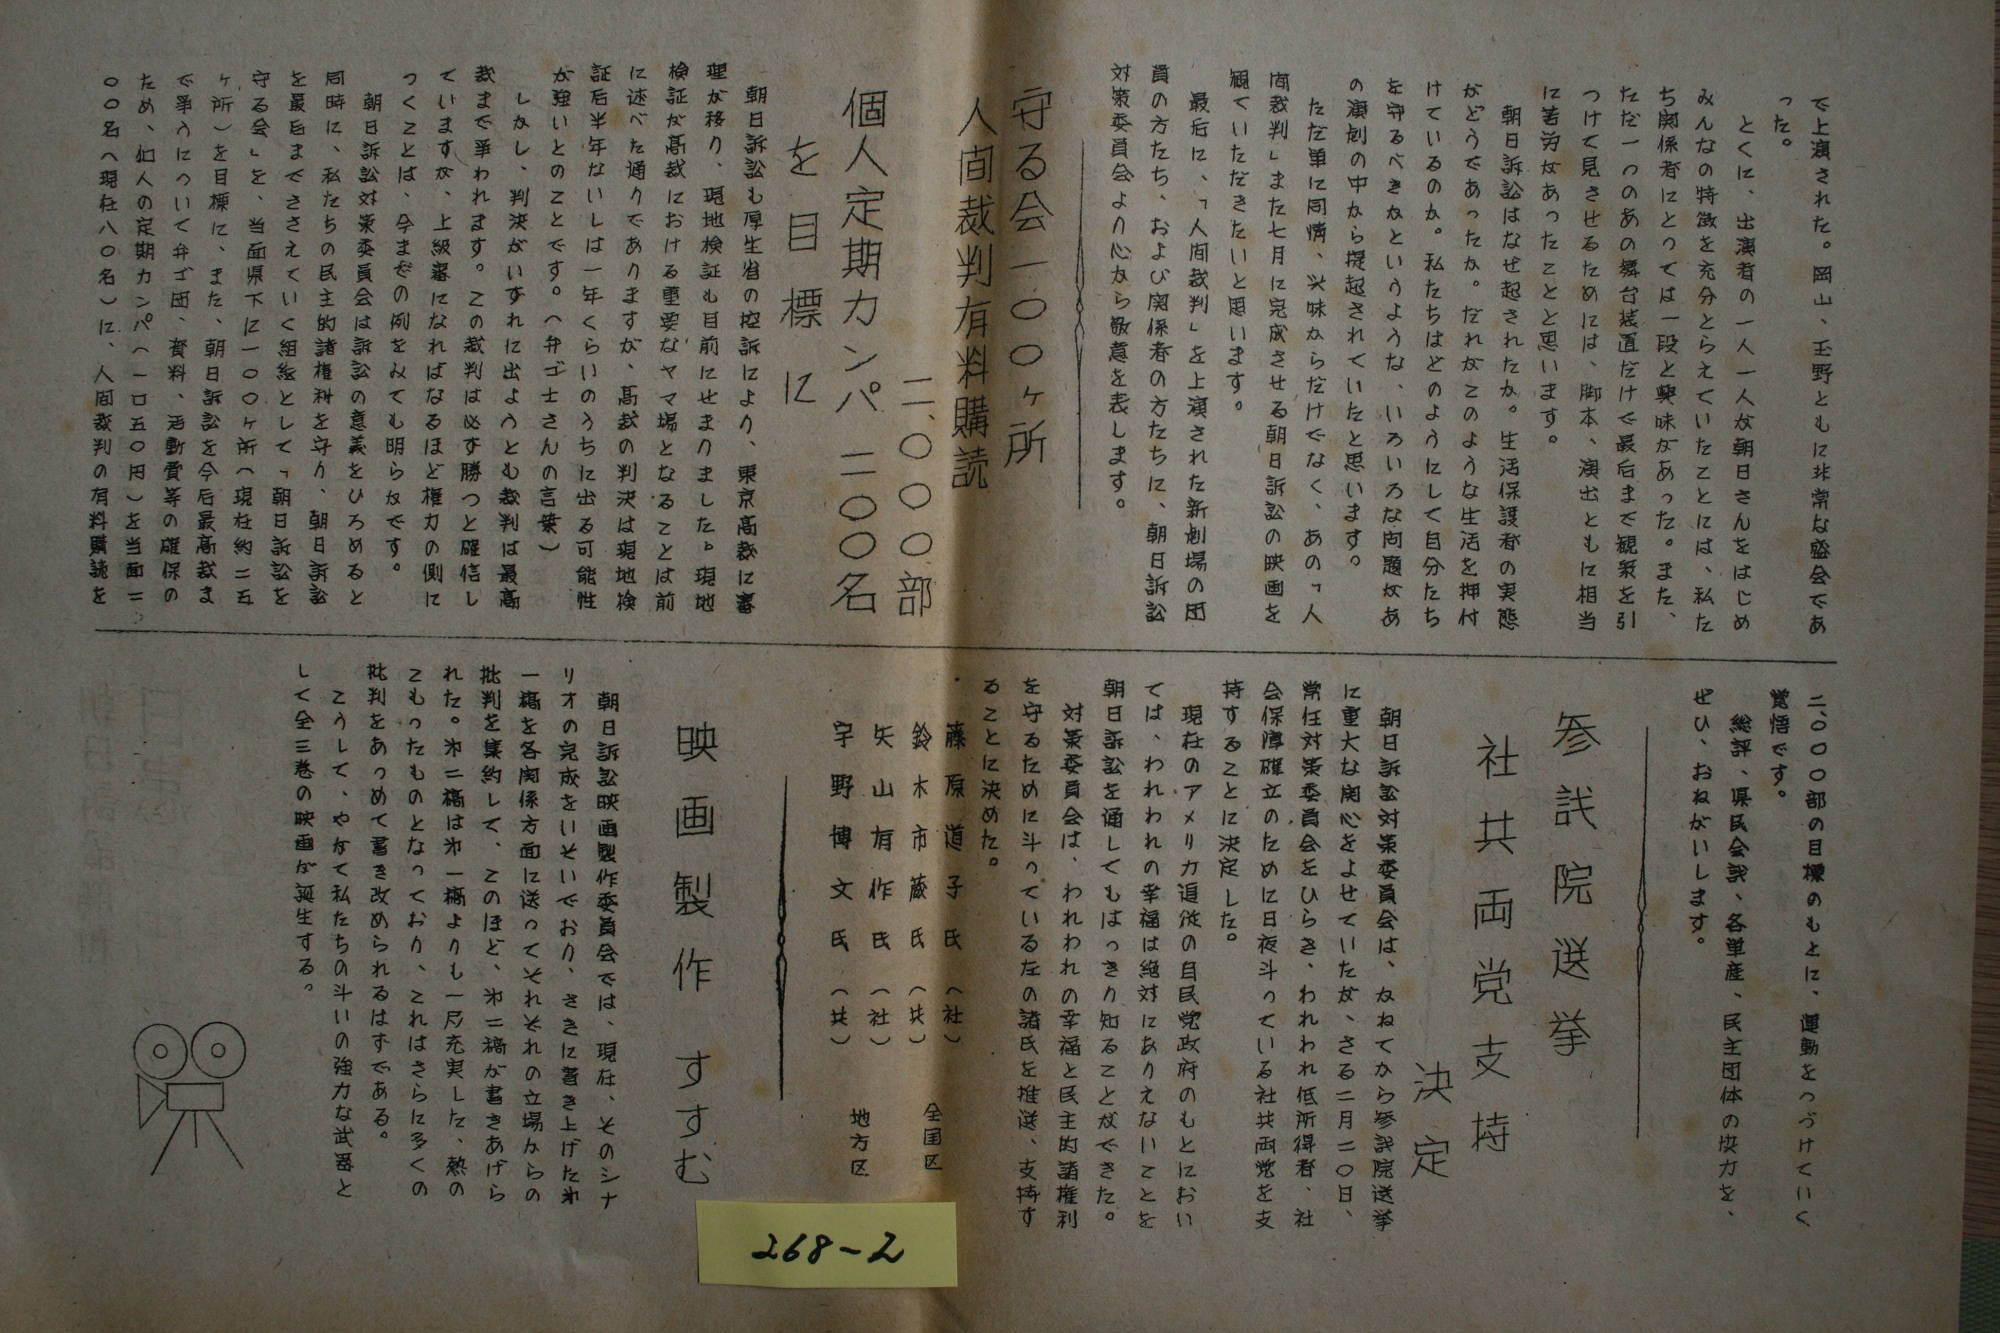 で上演された。岡山、玉野ともに非常な盛会であ
った。
とくに、出演者の一人一人が朝日さんをはじめ
みんなの特徴を充分とらえていたことには、私た
ち関係者にとっては一段と興味があった。また、
ただ一つのあの舞台装置だけで最后まで観衆を引
つけて見させるためには、脚本、演出ともに相当
に苦労があったことと思います。
朝日訴訟はなぜ起されたか。生活保護者の実態
がどうであったか。だれがこのような生活を押付
けているのか。私たちはどのようにして自分たち
を守るべきかというような、いろいろな問題があ
の演劇の中から提起されていたと思います。
ただ単に同情、興味からだけでなく、あの「人
間裁判」また七月に完成させる朝日訴訟の映画を
観ていただきたいと思います。
最后に、「人間裁判」を上演された新劇場の団
員の方たち、および関係者の方たちに、朝日訴訟
対策委員会より心から敬意を表します。
守る会一〇〇ヶ所
人間裁判有料購読
二、〇〇〇部
個人定期カンパ二〇〇名
を目標に
朝日訴訟も厚生省の控訴により、東京高裁に審
理が移り、現地検証も目前にせまりました。現地
検証が高裁における重要なヤマ場となることは前
に述べた通りでありますが、高裁の判決は現地検
証后半年ないしは一年くらいのうちに出る可能性
が強いとのことです。（弁ゴ士さんの言葉）
しかし、判決がいずれに出ようとも裁判は最高
裁まで争われます。この裁判は必ず勝つと確信し
ていますが、上級審になればなるほど権力の側に
つくことは、今までの例をみても明らかです。
朝日訴訟対策委員会は訴訟の意義をひろめると
同時に、私たちの民主的諸権利を守り、朝日訴訟
を最后までささえていく組織として「朝日訴訟を
守る会」を、当面県下に一〇〇ヶ所（現在約二五
ヶ所）を目標に、また、朝日訴訟を今后最高裁ま
で争うについて弁ゴ団、資料、活動費等の確保の
ため、個人の定期カンパ（一口五〇円）を当面二
〇〇名（現在八〇名）に、人間裁判の有料購読を
二、〇〇〇部の目標のもとに、運動をつづけていく
覚悟です。
総評、県民会議、各単産、民主団体の協力を、
ぜひ、おねがいします。
参議院選挙
社共両党支持
決定
朝日訴訟対策委員会は、かねてから参議院選挙
に重大な関心をよせていたが、さる二月二〇日、
常任対策委員会をひらき、われわれ低所得者、社
会保障確立のために日夜斗っている社共両党を支
持することに決定した。
現在のアメリカ追従の自民党政府のもとにおい
ては、われわれの幸福は絶対にありえないことを
朝日訴訟を通してもはっきり知ることができた。
対策委員会は、われわれの幸福と民主的諸権利
を守るために斗っている左の諸氏を推選、支持す
ることに決めた。
藤原道子氏（社）
鈴木市蔵氏（共）全国区
矢山有作氏（社）
宇野博文氏（共）地方区
映画製作すすむ
朝日訴訟映画製作委員会では、現在、そのシナ
リオの完成をいそいでおり、さきに書き上げた㐧
一稿を各関係方面に送ってそれぞれの立場からの
批判を集約して、このほど、㐧二稿が書きあげら
れた。㐧二稿は㐧一稿よりも一层充実した、熱の
こもったものとなっており、これはさらに多くの
批判をあつめて書き改められるはずである。
こうして、やがて私たちの斗いの強力な武器と
して全三巻の映画が誕生する。
268-2